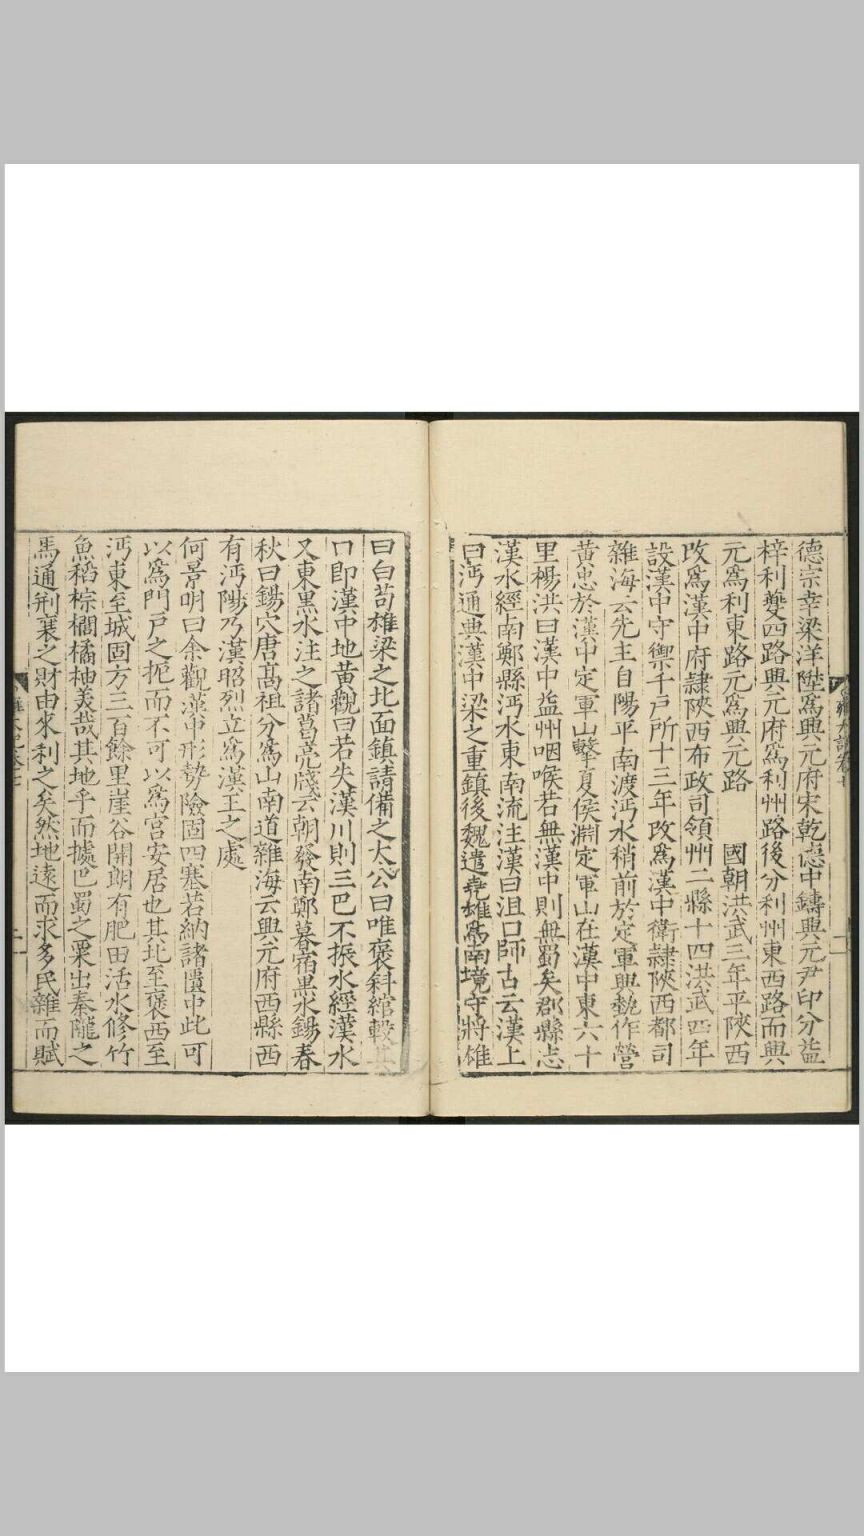 德宗幸梁洋陞爲興元府宋乾德中鑄興元尹印分益
梓利夔四路興元府爲利州路後分利州東西路而興
元爲利東路元爲興元路 國朝洪武三年平陝西
改爲漢中府隷陝西布政司領州二縣十四洪武四年
設漢中守禦千戶所十三年改爲漢中衛隷陝西都司
雜海云先主自陽平南渡沔水稍前於定軍興勢作營
黃忠於漢中定軍山擊夏侯淵定軍山在漢中東六十
里楊洪曰漢中益州咽喉若無漢中則無蜀矣郡縣志
漢水經南鄭縣沔水東南流注漢曰沮口師古云漢上
曰沔通典漢中梁之重鎮後魏遣堯雄爲南境守將雄
曰白苟雄梁之北面鎮請備之太公曰唯褒斜綰轂其
口即漢中地黃觀曰若失漢川則三巴不振水經漢水
又東黑水注之諸葛亮牋云朝發南鄭暮宿黑水錫春
秋曰錫穴唐髙祖分爲山南道雜海云興元府西縣西
有沔陽乃漢昭烈立爲漢王之處
何景明曰余觀漢中形勢險固四塞若納諸匱中此可
以爲門戶之扼而不可以爲宫安居也其北至褒西至
沔東至城固方三百餘里崖谷開朗有肥田活水修竹
魚稻棕櫚橘柚美哉其地乎而據巴蜀之粟出秦隴之
馬通荆襄之財由來利之矣然地遠而求多民雜而賦